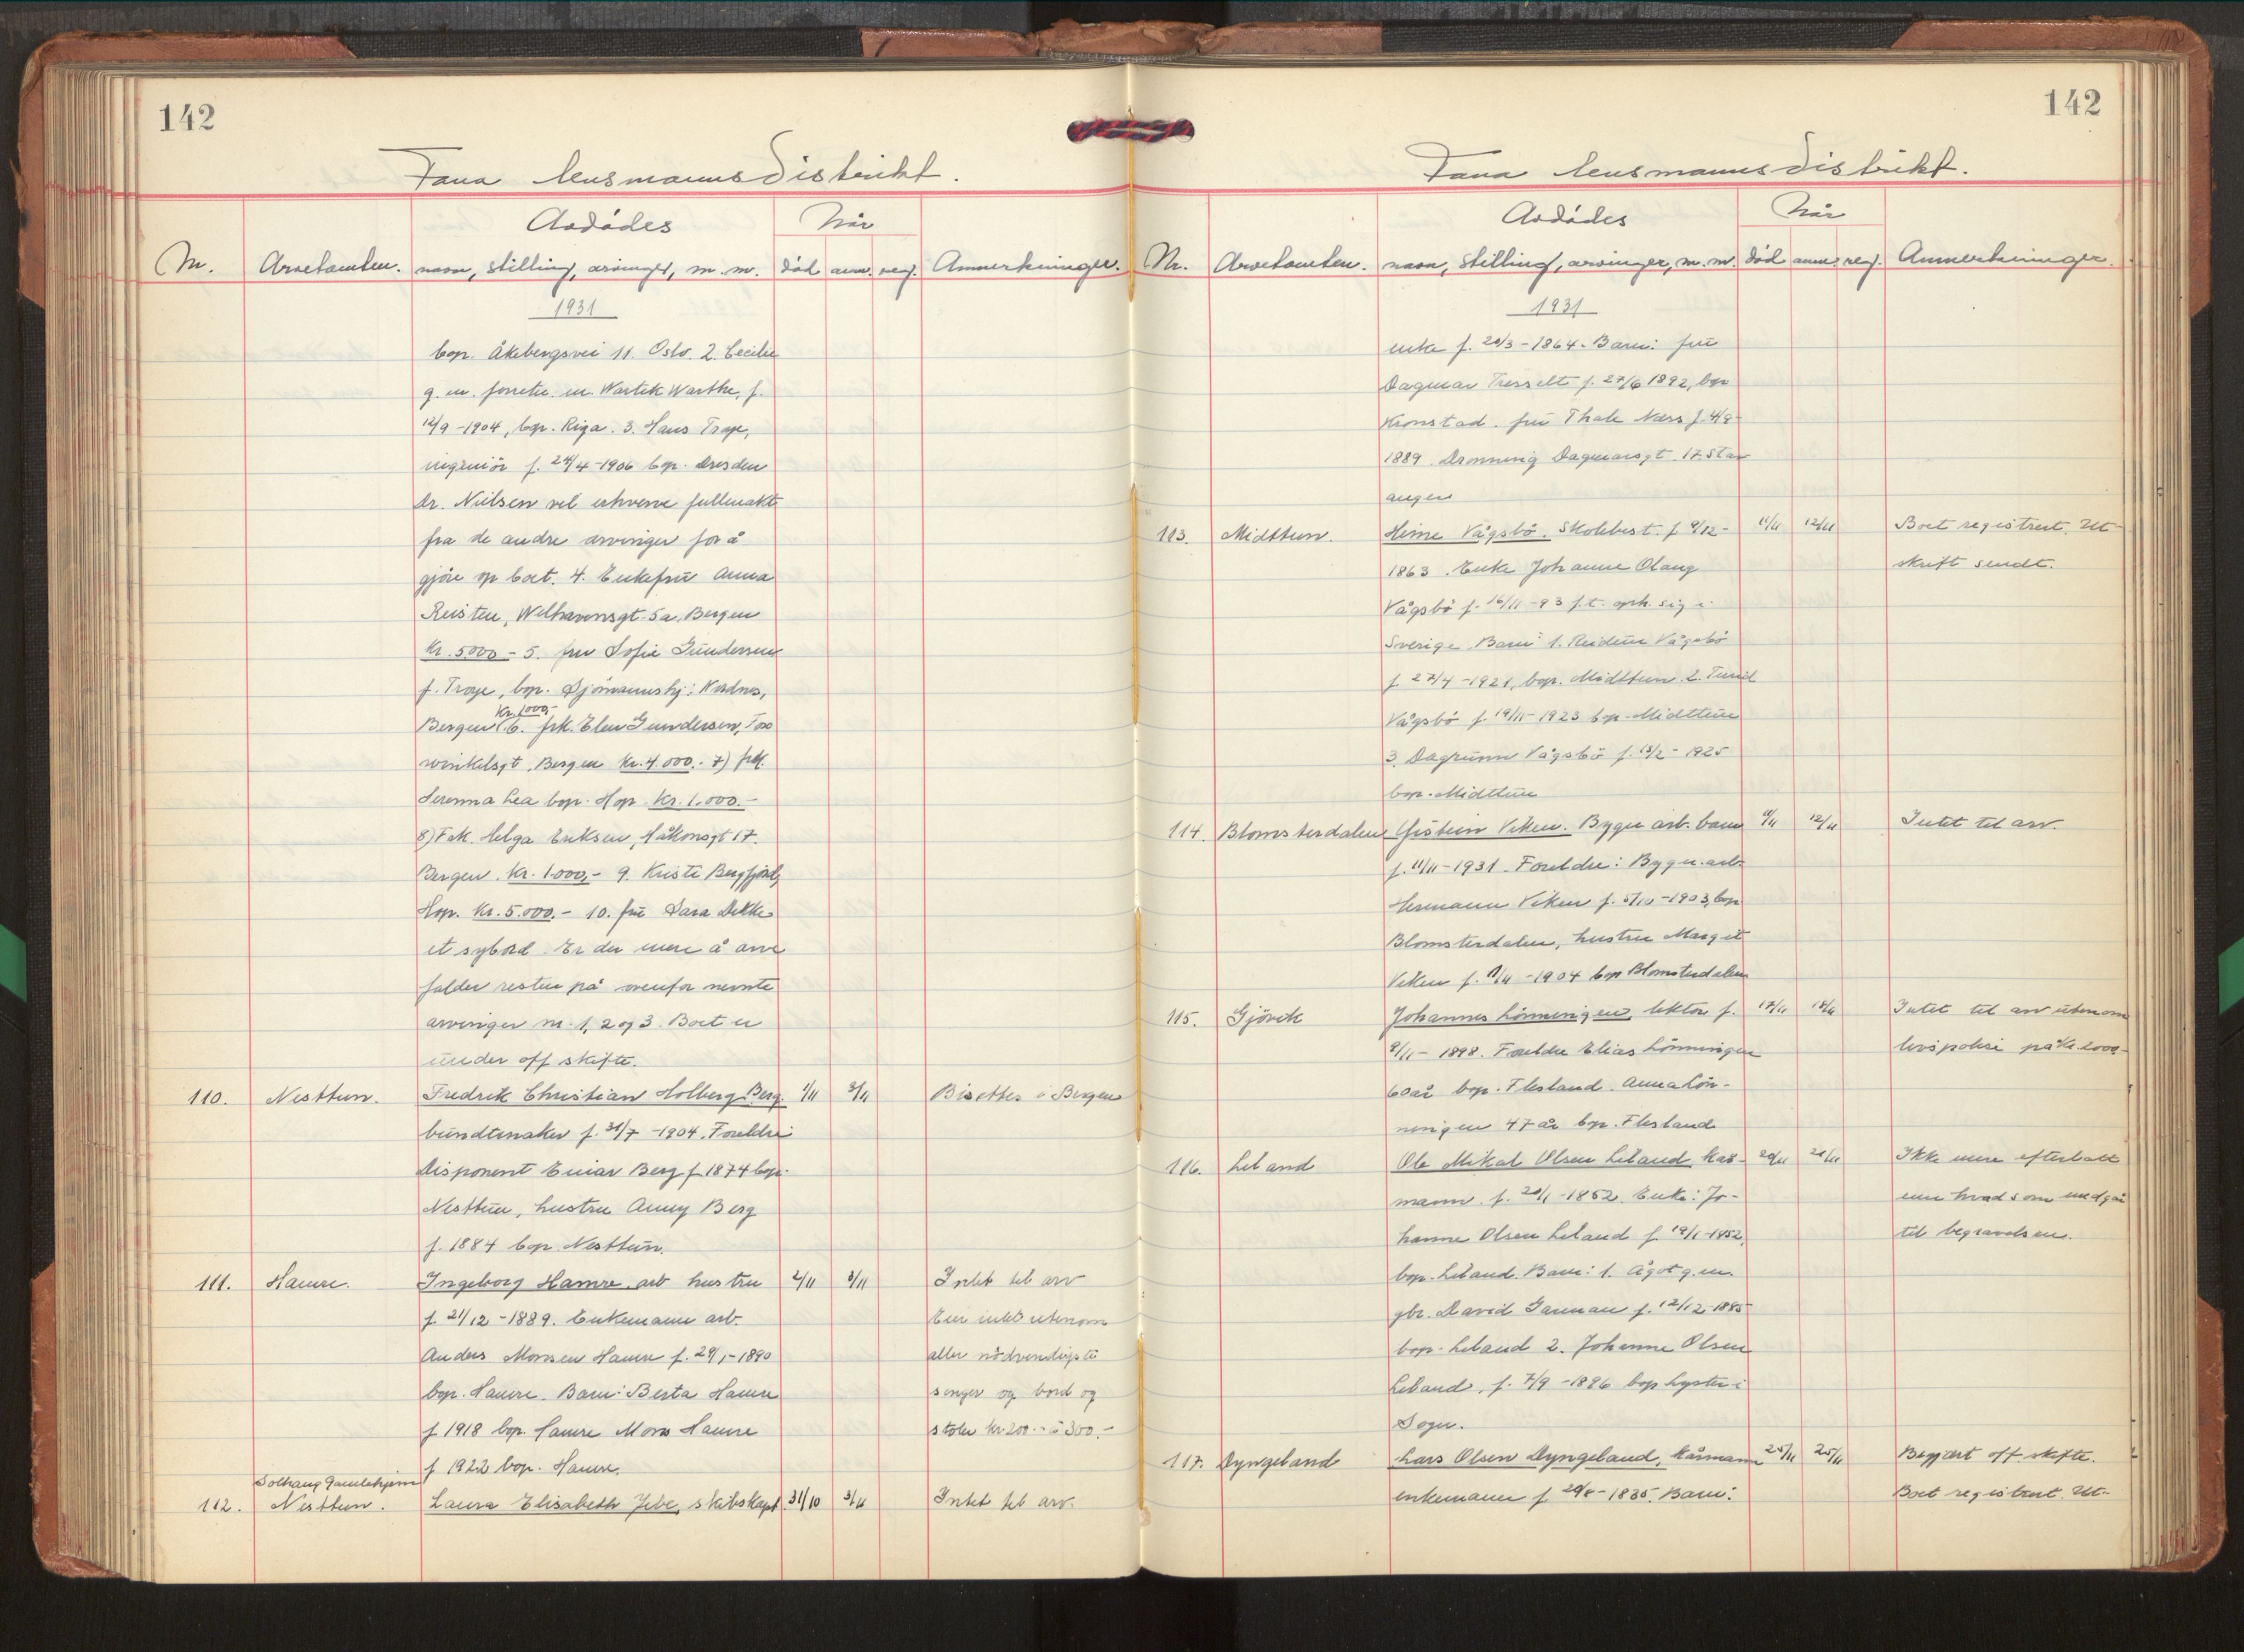 142
Fana lensmannsdistrikt.
Avdødes
Når
Nr. Arvetomten. navn, stilling, arvinger, m.m. død anm. reg. Anmerkninger.
1931
bop. Åkebergsvei 11. Oslo. 2. Cecilie
g.m. forretn. m. Wartek Warthe, f.
12/9-1904, bop. Riga. 3. Hans Troye,
ingeniør f. 24/4-1906 bop. Dresden
Dr. Nielsen vel erhverve fullmakt
fra de andre arvinger for å
gjøre op boet. 4. Enkefru Anna
Reisten, Welhavensgt. 5a, Bergen
Kr. 5000 - 5. fru Sofie Gundersen
f. Troye, bop. Sjømannshj: Nordnes,
Kr. 1000,-
Bergen (6. frk. Elen Gundersen,
vinkelsgt, Bergen Kr. 4.000.- 7) frk.
Serenna Lea bop. Hop. Kr. 1.000.-
8) Frk. Helga Eriksen, Håkonsgt 17.
Bergen. Kr. 1.000,- 9. Kristi Bergfjord,
Hop. Kr. 5.000.- 10. frü Sara Dekke
et sybord. Er der mere å arve
falder resten på ovenfor nevnte
arvinger nr. 1, 2 og 3. Boet er
under off skifte.
110. Nesttun. Fredrik Christian Holberg Berg. 1/11 3/11 Bisettes i Bergen
bundtmaker f. 31/7-1904. Foreldre
Disponent Einar Berg f 1874 bop.
Nesttun, hustru Anny Berg
f. 1884 bop. Nesttun.
111. Hamre. Ingeborg Hamre. arb hustru 2/11 3/11 Intet til arv
f. 21/12-1889. Enkemann arb. Eier intet utenom
Anders Monsen Hamre f. 29/1-1890 aller nødvendigste
bop. Hamre. Barn: Berta Hamre senger og bord og
f 1918 bop. Hamre Mons Hamre stoler kr 200.- à 300.-
f 1922 bop. Hamre.
Solhaug Gamlehjem
112. Nesttun. Laura Elisabeth Jebe, skibskapt. 31/10 3/11 Intet til arv.
142
Fana lensmannsdistrikt.
Avdødes
Når
Nr. Arvetomten. navn, stilling, arvinger, m.m. død anm. reg. Anmerkninger.
1931
enke f. 20/3-1864. Barn: frü
Dagmar Tresselt f. 27/6 1892, bop
Kronstad. frü Thale Næss f. 4/9-
1889. Dronning Dagmarsgt. 17. Stav
anger
113. Midttun. Heine Vågsbø. Skolebest. f 9/12- 11/11 12/11 Boet registrert. Ut-
1863. Enke Johanne Olaug skrift sendt.
Vågsbø f. 16/11-93 f.t. oph. sig i
Sverige. Barn 1. Reidun Vågsbø
f. 27/4-1921, bop. Midttun. 2. Turid
Vågsbø f. 19/11-1923 bop. Midttun
3. Dagrunn Vågsbø f. 13/2-1925
bop. Midttun
114. Blomsterdalen Øistein Viken. Bygn arb. barn 11/11 12/11 Intet til arv.
f. 11/11-1931. Foreldre: Bygn.arb.
Hermann Viken f. 5/10-1903, bop
Blomsterdalen, hustru Margit
Viken f. 11/4-1904 bop Blomsterdalen
115. Gjøvik Johannes Lønningen, lektor f. 17/11 18/11 Intet til arv utenom
9/11-1898. Foreldre Elias Lønningen livspolise på Kr. 1000.-
60 år bop. Flesland. Anna Løn-
ningen 47 år bop. Flesland
116. Liland Ole Mikal Olsen Liland, kår- 20/11 21/11 Ikke mere efterlatt
mann. f. 20/1-1852. Enke: Jo- enn hvad som medgår
hanne Olsen Liland f. 19/1-1852, til begravelsen.
bop. Liland. Barn: 1. Ågot g.m.
gbr. David Garman f. 12/12-1885
bop. Liland 2. Johanne Olsen
Liland, f. 7/9-1896 bop Lyster i
Sogn.
117. Dyngeland Lars Olsen Dyngeland, kårmann 25/11 25/11 Begjært off skifte.
enkemann f 29/8-1835. Barn: Boet registrert. Ut-